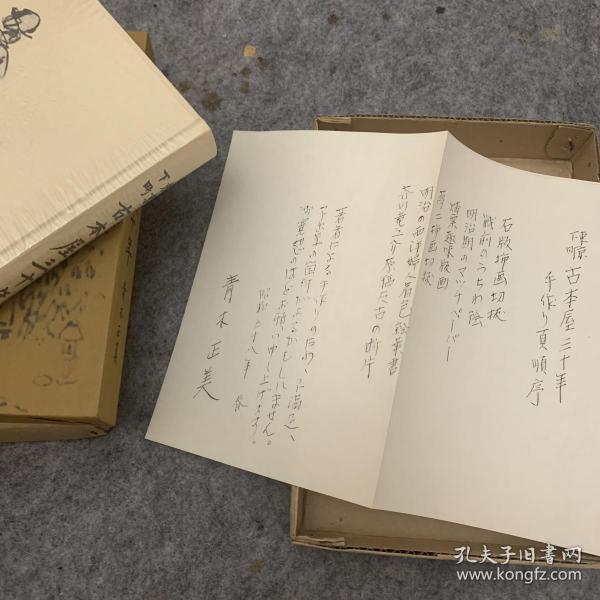 古本屋三十年
手作り頁順序
石版挿画切抜
戦前のうちわ絵
明治期のマッチペーパー
燐票趣味版画
夢二挿画切抜
明治の西洋婦人着色絵葉書
芥川竜之介原稿反古の断片
著者による手作りの为め、不満足、
不出来の箇所があるかもしれません。
御寛恕のほどお願い申し上げます。
昭和五十八年 春
青木正美
古本屋三十年
孔夫子旧书网
www.kongfz.com